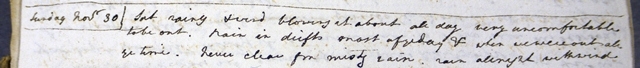 Sunday Nov. 30} Sat rainy & wind blowing at about all day very uncomfortable
to be out. Rain in drifts most of ye day & when we were out all
ye time. never clear from misty rain. rain all night with wind